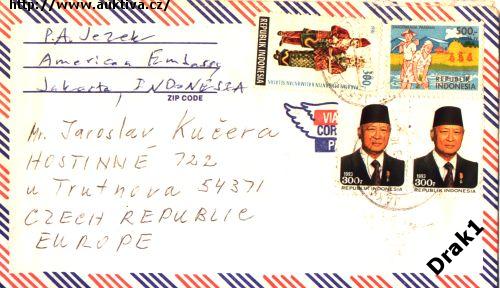 http://www.auktiva.cz/
P.A. Jezek
American Embassy
Jakarta INDONESIA
ZIP CODE
Mr. Jaroslav Kučera
HOSTINNÉ 722
u Trutnova 54371
CZECH REPUBLIC
EUROPE
REPUBLIK INDONESIA
380
500
REPUBLIK
INDONESIA
VIA
COR
P
1993
300r
REPUBLIK INDONESIA
1993
300r
REPUBLIK INDONESIA
Drak1